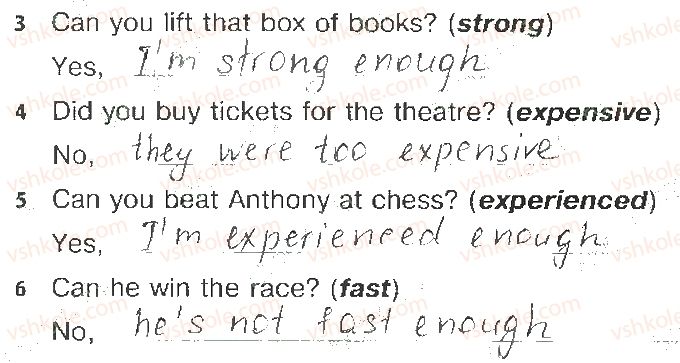 3 Can you lift that box of books? (strong)
Yes, I'm strong enough
4 Did you buy tickets for the theatre? (expensive)
No, they were too expensive
5 Can you beat Anthony at chess? (experienced)
Yes, I'm experienced enough
6 Can he win the race? (fast)
No, he's not fast enough